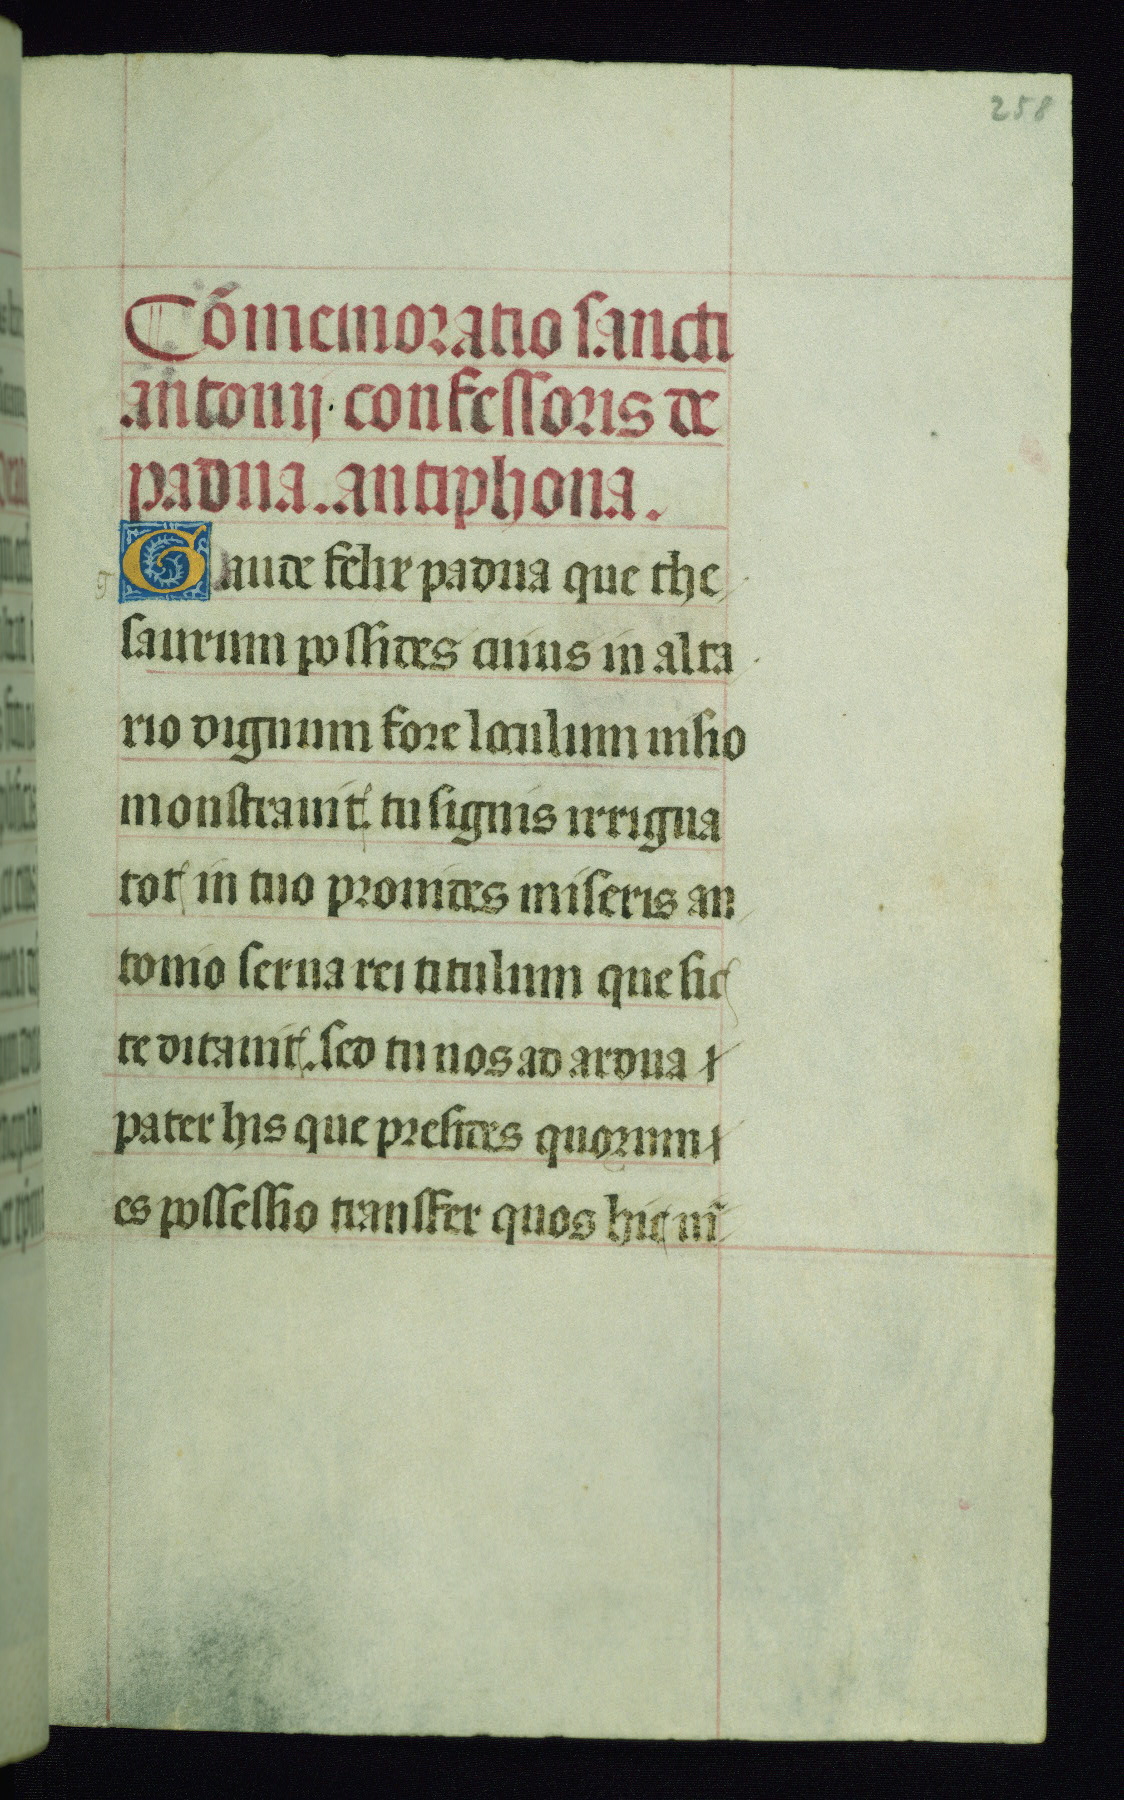 258
Cōmemoratio sancti
antonij. confessoris de
padua. antiphona.
Gaude felix padua que the
saurum possides cuius in alta
rio dignum fore loculum iussio
monstrauit. tu signis irrigua
tot in tuo prouides miseris an
tonio serua rei titulum que sic
te ditauit. sed tu nos ad ardua
pater his que presides quorum
es possessio transfer quos hic